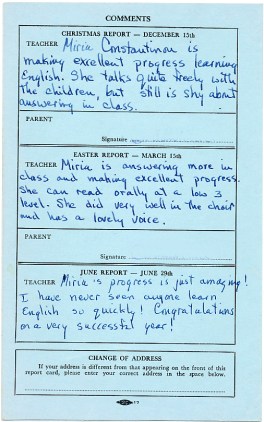 COMMENTS
CHRISTMAS REPORT — DECEMBER 15th
TEACHER Miria Constantinou is
making excellent progress learning
English. She talks quite freely with
the children, but still is shy about
answering in class.
PARENT
Signature
EASTER REPORT — MARCH 15th
TEACHER Miria is answering more in
class and making excellent progress.
She can read orally at a low 3
level. She did very well in the choir
and has a lovely voice.
PARENT
Signature
JUNE REPORT — JUNE 29th
TEACHER Miria's progress is just amazing!
I have never seen anyone learn
English so quickly! Congratulations
on a very successful year!
CHANGE OF ADDRESS
If your address is different from that appearing on the front of
this report card, please enter your correct address in the space below.